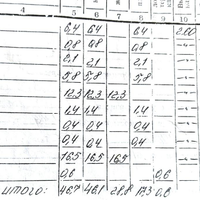 4 5 6 7 8 9 10
6,4 6,4 6,4 2.00
0,8 0,8 0,8 -"-
2,1 2,1 2,1 -"-
5,8 5,8 5,8 -"-
12,3 12,3 12,3 -"-
1,4 1,4 1,4 -"-
0,4 0,4 0,4 -"-
0,4 0,4 0,4 -"-
16,5 16,5 16,5 -"-
0,6 0,6 -"-
итого: 46,7 46,1 28,8 17,3 0,6